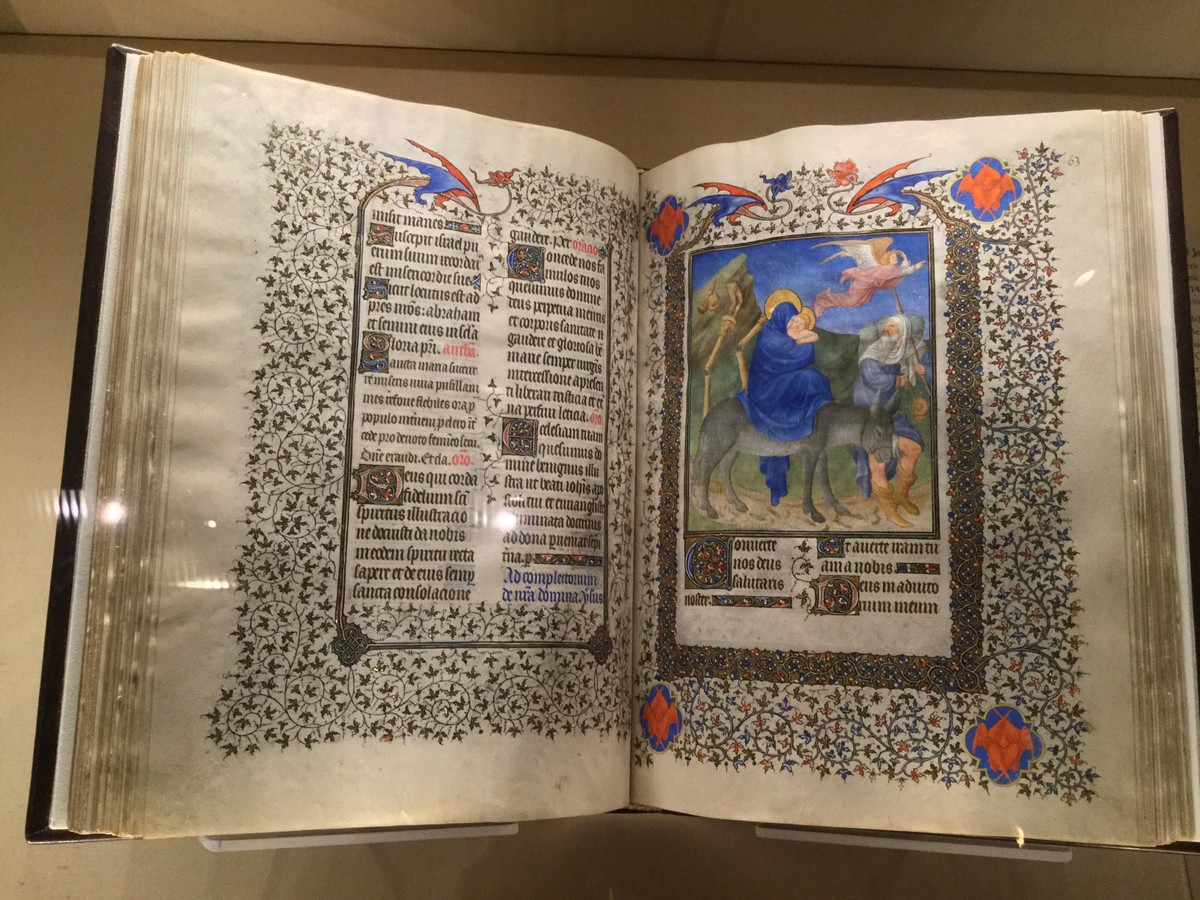 inisit manes
Suscepit israel pu
erum suum recordat
est misericordie sue
Sicut locutus est ad
pres nros: abraham
et semini eius in sela
Gloria pri. antha.
Sancta maria succur
re miseris iuva pusillani
mes refove flebiles ora p
populo interveni p clero it
cede pro devoto femineo sexu
Dne exaudi. Et cla. oro.
Deus qui corda
fidelium
spiritus illustracio
ne docuisti da nobis
in eodem spiritu recta
sapere et de eius semp
sancta consolacione
gaudere. Per oracio
Concede nos fa
mulos tuos
quesumus domine
deus perpetua mentis
et corporis sanitate
gaudere et gloriosa be
marie semper virginis
intercessione a presen
ti liberari tristicia et et
na perfrui leticia. oro
Ecclesiam tuam
quesumus do
mine benignus illu
stra ut beati iohis apo
stoli tui et euangeliste
illuminata doctrinis
ad dona pveniat sempi
tna. p
Ad completorium
de nra domina. ysus
63
Converte
nos deus
salutaris
noster.
Et averte iram tu
am a nobis
Deus in adiuto
rium meum